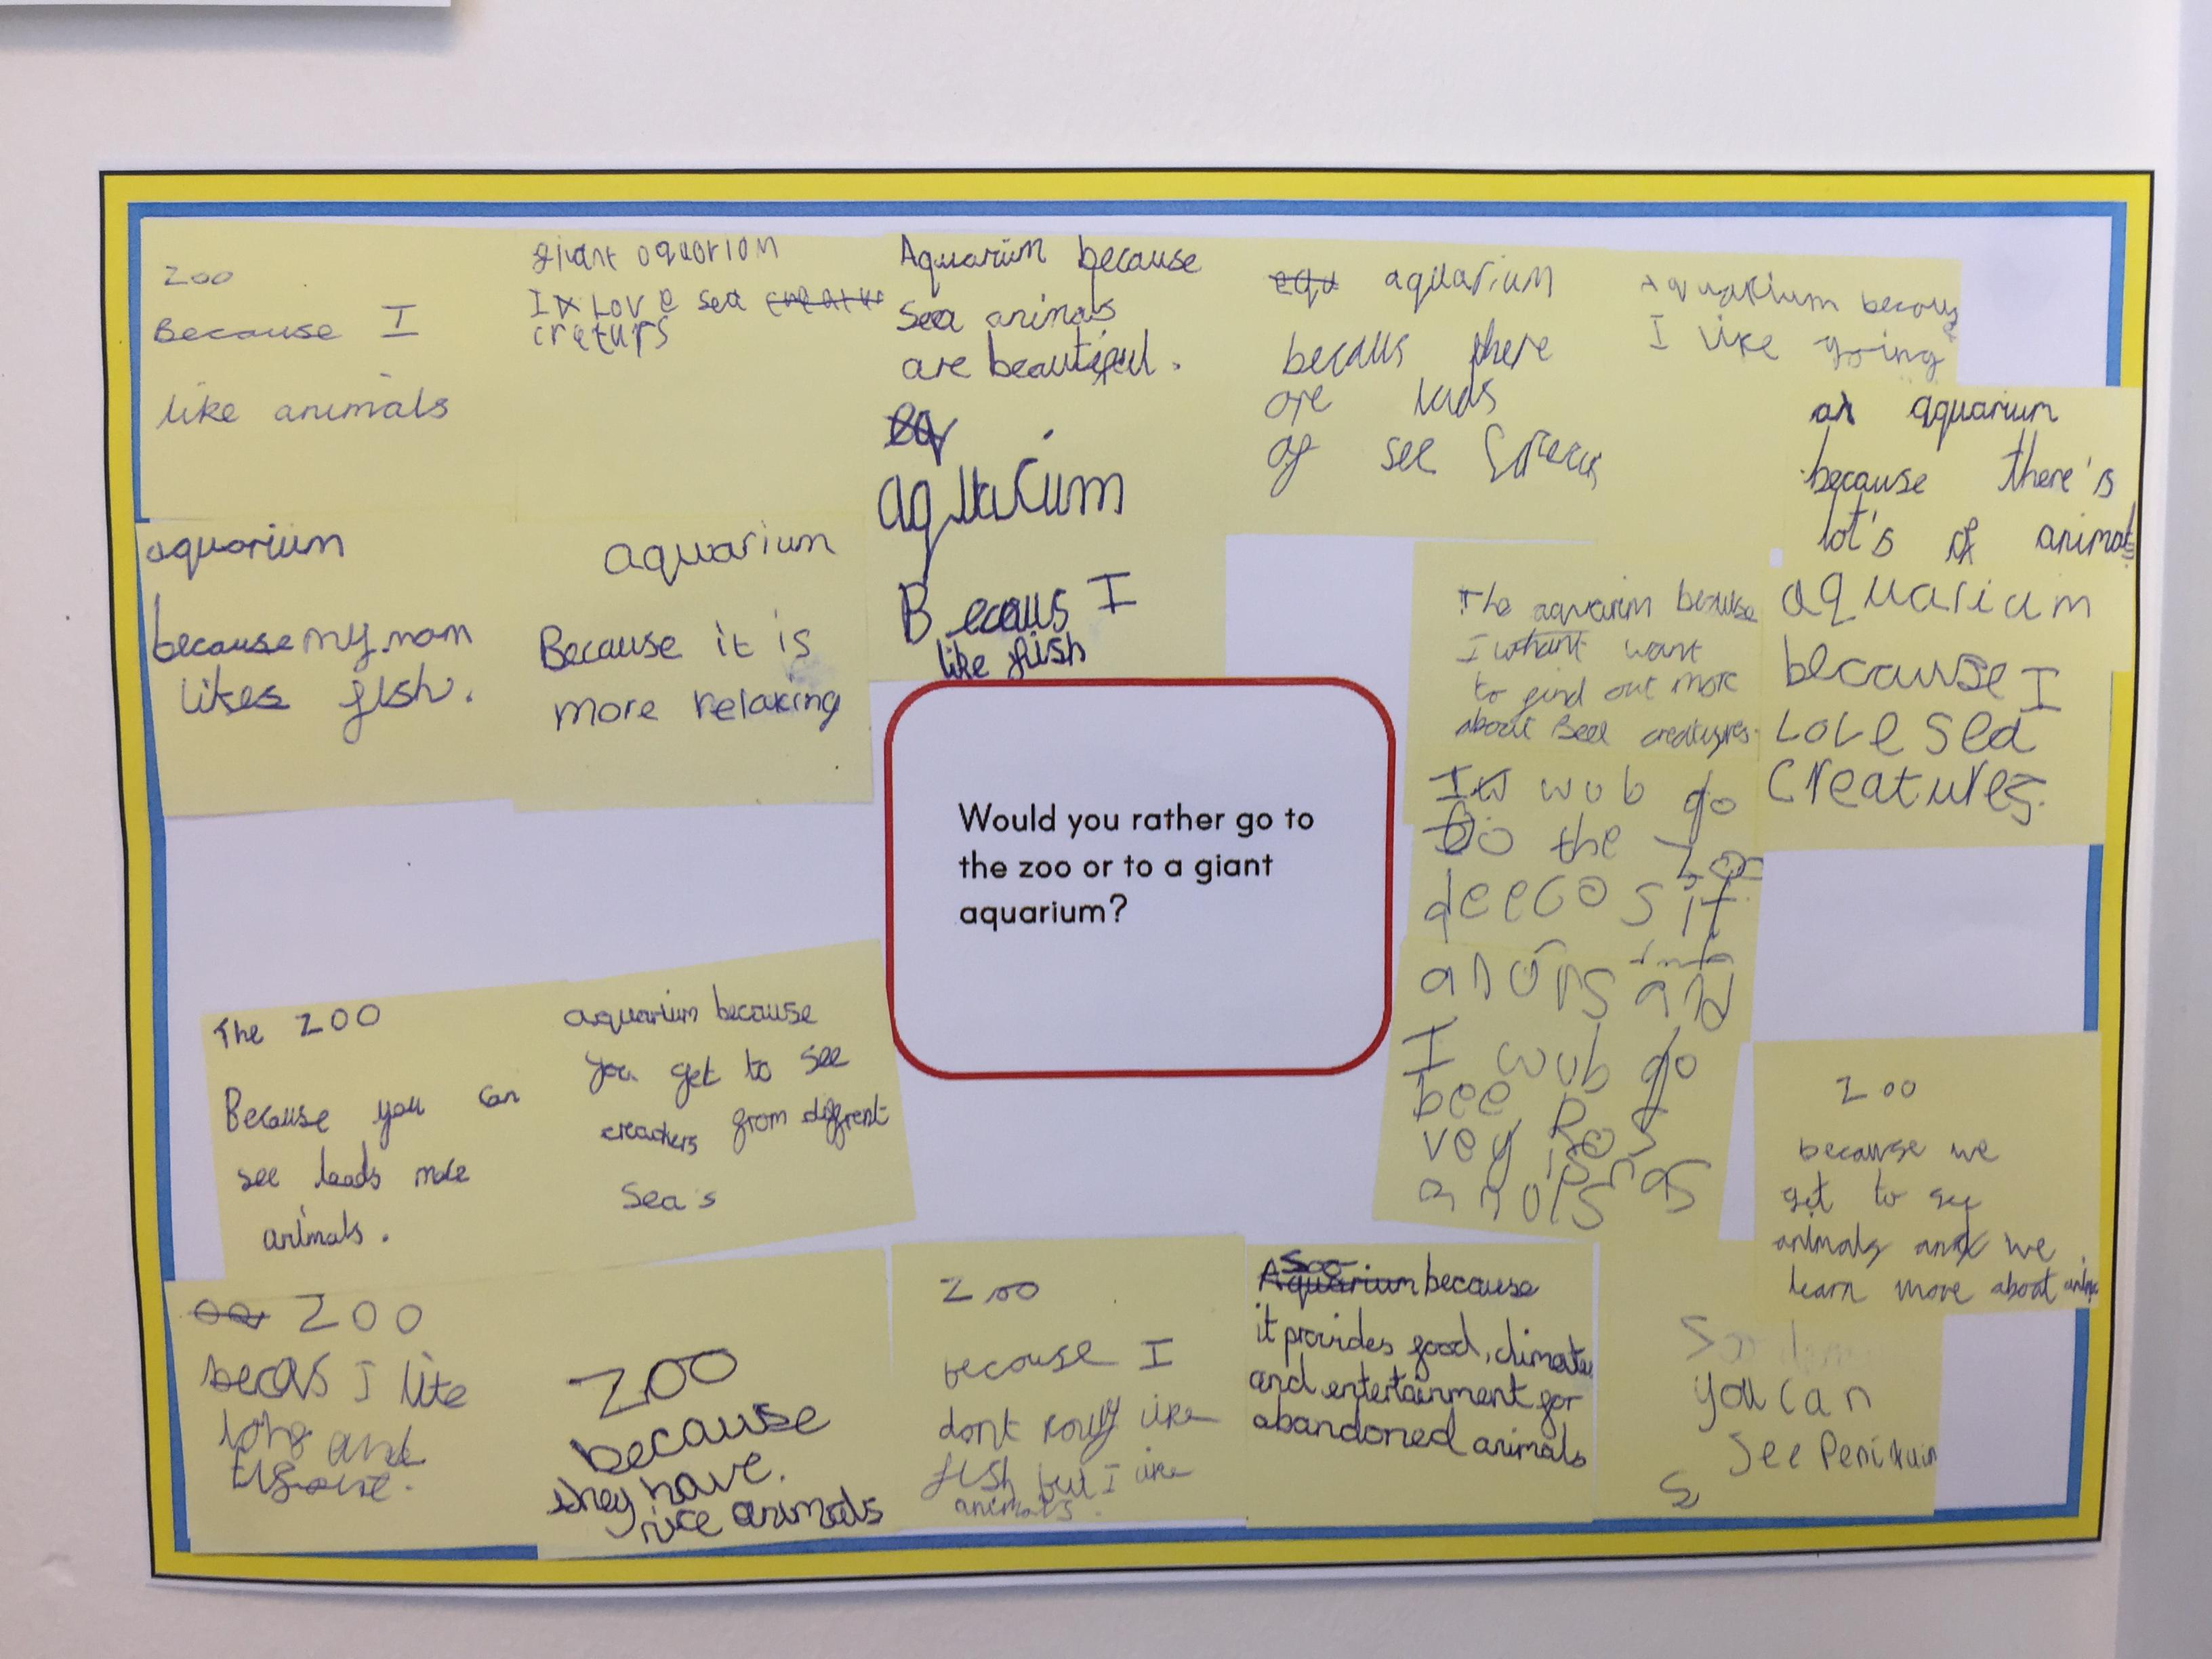 Zoo
Because I
like animals
giant aquarium
I Love sea
creturs
Aquarium because
sea animals
are beautiful.
aquarium
becaus there
are lads
of see
Aquarium becaus
I like going
an aquarium
because there's
lot's of animals
aquarium
because my mom
likes fish.
aquarium
Because it is
more relaxing
aquarium
Becaus I
like fish
The aquarium because
I want
to find out more
about Seea creatures.
aquarium
because I
Love sea
Creatures.
Would you rather go to
the zoo or to a giant
aquarium?
I wub go
to the Zoo
I wub go
The ZOO
Because you can
see loads more
animals.
aquarium because
you get to see
creachers from diffrent
Sea's
Zoo
because we
get to see
animals and we
learn more about
ZOO
becas I like
and
ZOO
because
they have.
nice animals
Zoo
because I
dont rouly like
fish but I like
animals.
Soo
Aquarium because
it provides food, climate
and entertainment for
abandoned animals
you can
See